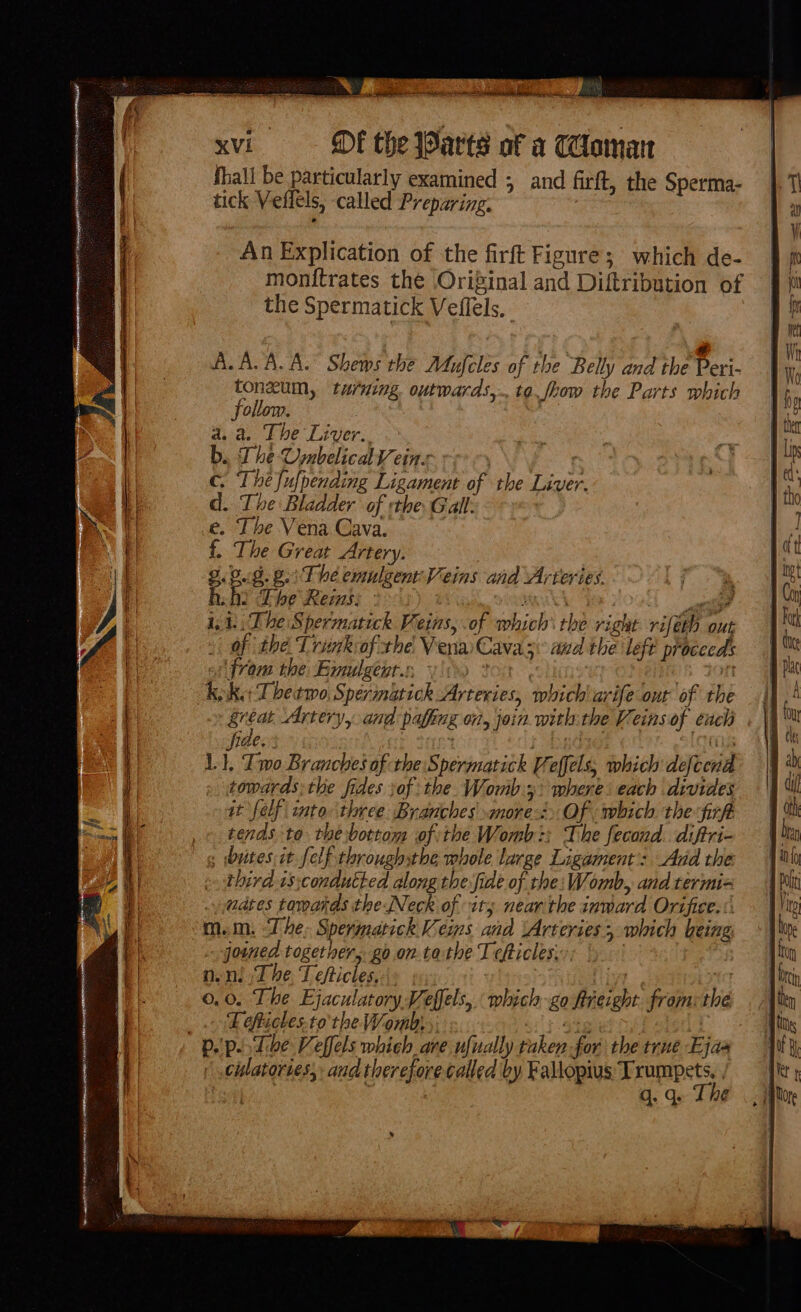 xvi Of the Parts of a Woman
ſhall be particularly examined ; and firſt, the Sperma-
tick Veſſels, called Preparing.
An Explication of the firſt Figure ; which de-
monſtrates the Original and Diſtribution of
the Spermatick Veſſels.
A. A. A. A. Shews the Muſcles of the Belly and the Peri-
tonæum, turning outwards, to ſhow the Parts which
follow.
a. a. The Liver.
b. The Umbelical Vein.
c. The ſuſpending Ligament of the Liver.
d. The Bladder of the Gall.
e. The Vena Cava.
f. The Great Artery.
g. g. g. g. The emulgent Veins and Arteries.
h. h. The Reins.
i. i. The Spermatick Veins, of which the right riſeth out
of the Trunk of the Vena Cava ; and the left proceeds
from the Emulgent.
k. k. The two Spermatick Arteries, which ariſe out of the
great Artery, and paſſing on, join with the Veins of each
ſide.
l. l. Two Branches of the Spermatick Veſſels, which deſcend
towards the ſides of the Womb ; where each divides
it ſelf into three Branches more : Of which the firſt
tends to the bottom of the Womb : The ſecond diſtri-
butes it ſelf through the whole large Ligament : And the
third is conducted along the ſide of the Womb, and termi-
nates towards the Neck of it, near the inward Orifice.
m. m. The Spermatick Veins and Arteries ; which being
joined together, go on to the Teſticles.
n. n. The Teſticles.
o. o. The Ejaculatory Veſſels, which go ſtreight from the
Teſticles to the Womb.
p. p. The Veſſels which are uſually taken for the true Eja-
culatories, and therefore called by Fallopius Trumpets.
q. q. The